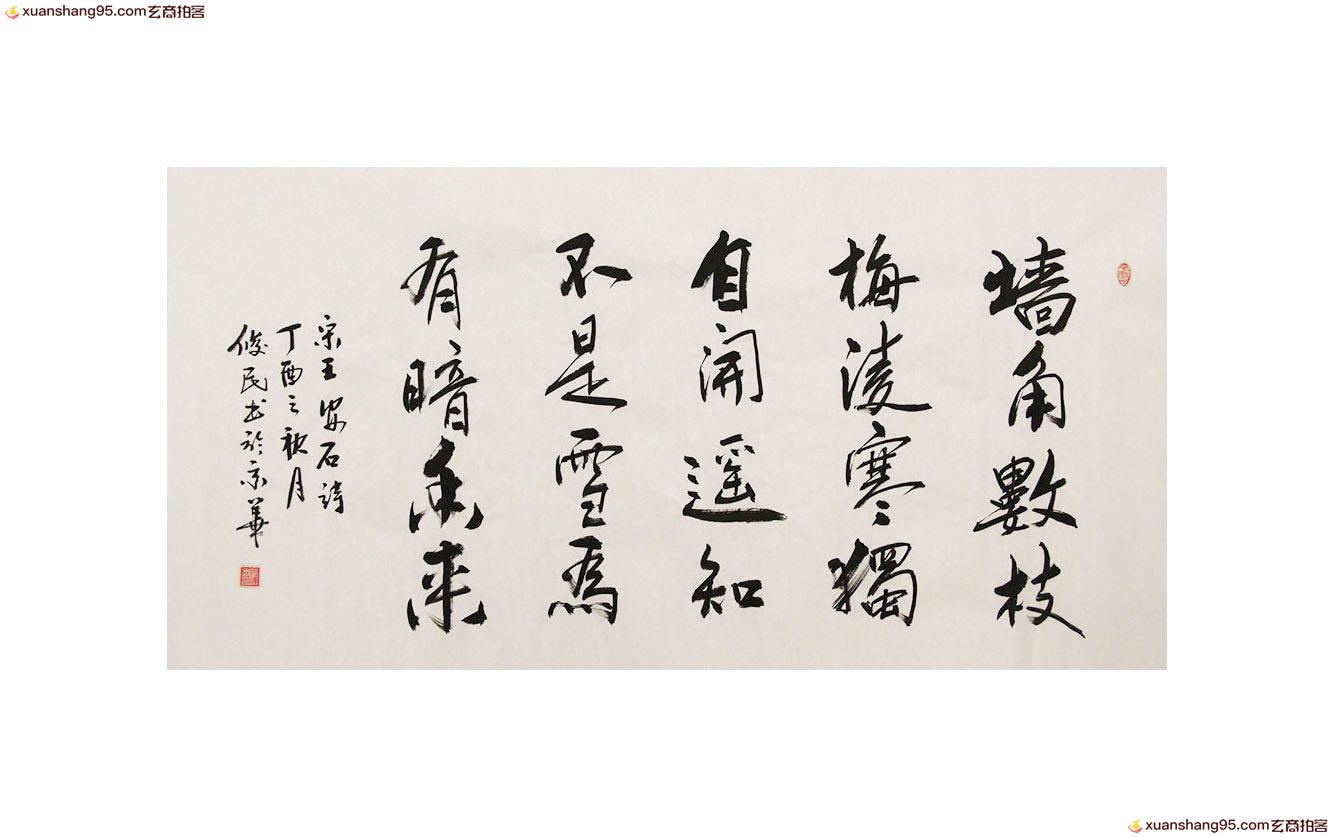 xuanshang95.com玄商拍客
墙角數枝
梅凌寒獨
自開遥知
不是雪為
有暗香来
宋王安石詩
丁酉之秋月
俊民书於京華
xuanshang95.com玄商拍客